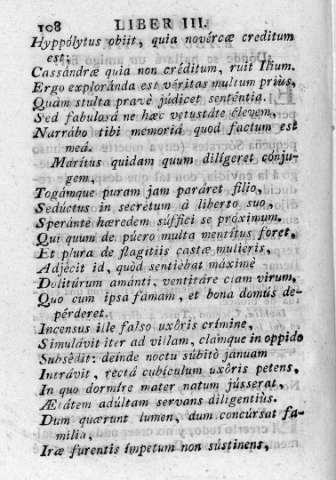 108 LIBER III.
Hyppólytus obiit, quia novércæ creditum
est;
Cassándræ quia non créditum, ruit Ilium.
Ergo exploránda est véritas multum prius,
Quàm stulta pravè júdicet senténtia.
Sed fabulosá ne hæc vetustáte élevem,
Narrábo tibi memoriá quod factum est
meá.
Máritus quidam quum dilígeret cónju-
gem,
Togámque puram jam paráret filio,
Sedúctus in secretum à liberto suo,
Speránte hæredem súffici se próximum.
Qui quum de púero multa mentítus foret,
Et plura de flagitiis castæ mulieris,
Adjècit id, quòd sentiébat máximè
Dolitúrum amánti, ventitáre clam virum,
Quo cum ipsa famam, et bona domús de-
pérderet.
Incensus ille falso uxóris crimine,
Simulávit iter ad villam, clamque in oppido
Subsèdit: deínde noctu súbitò januam
Intrávit, rectá cubículum uxóris petens,
In quo dormíre mater natum jússerat,
Ætátem adúltam servans diligéntiùs.
Dum quærunt lumen, dum concúrsat fa-
milia,
Iræ furentis ímpetum non sústinens,